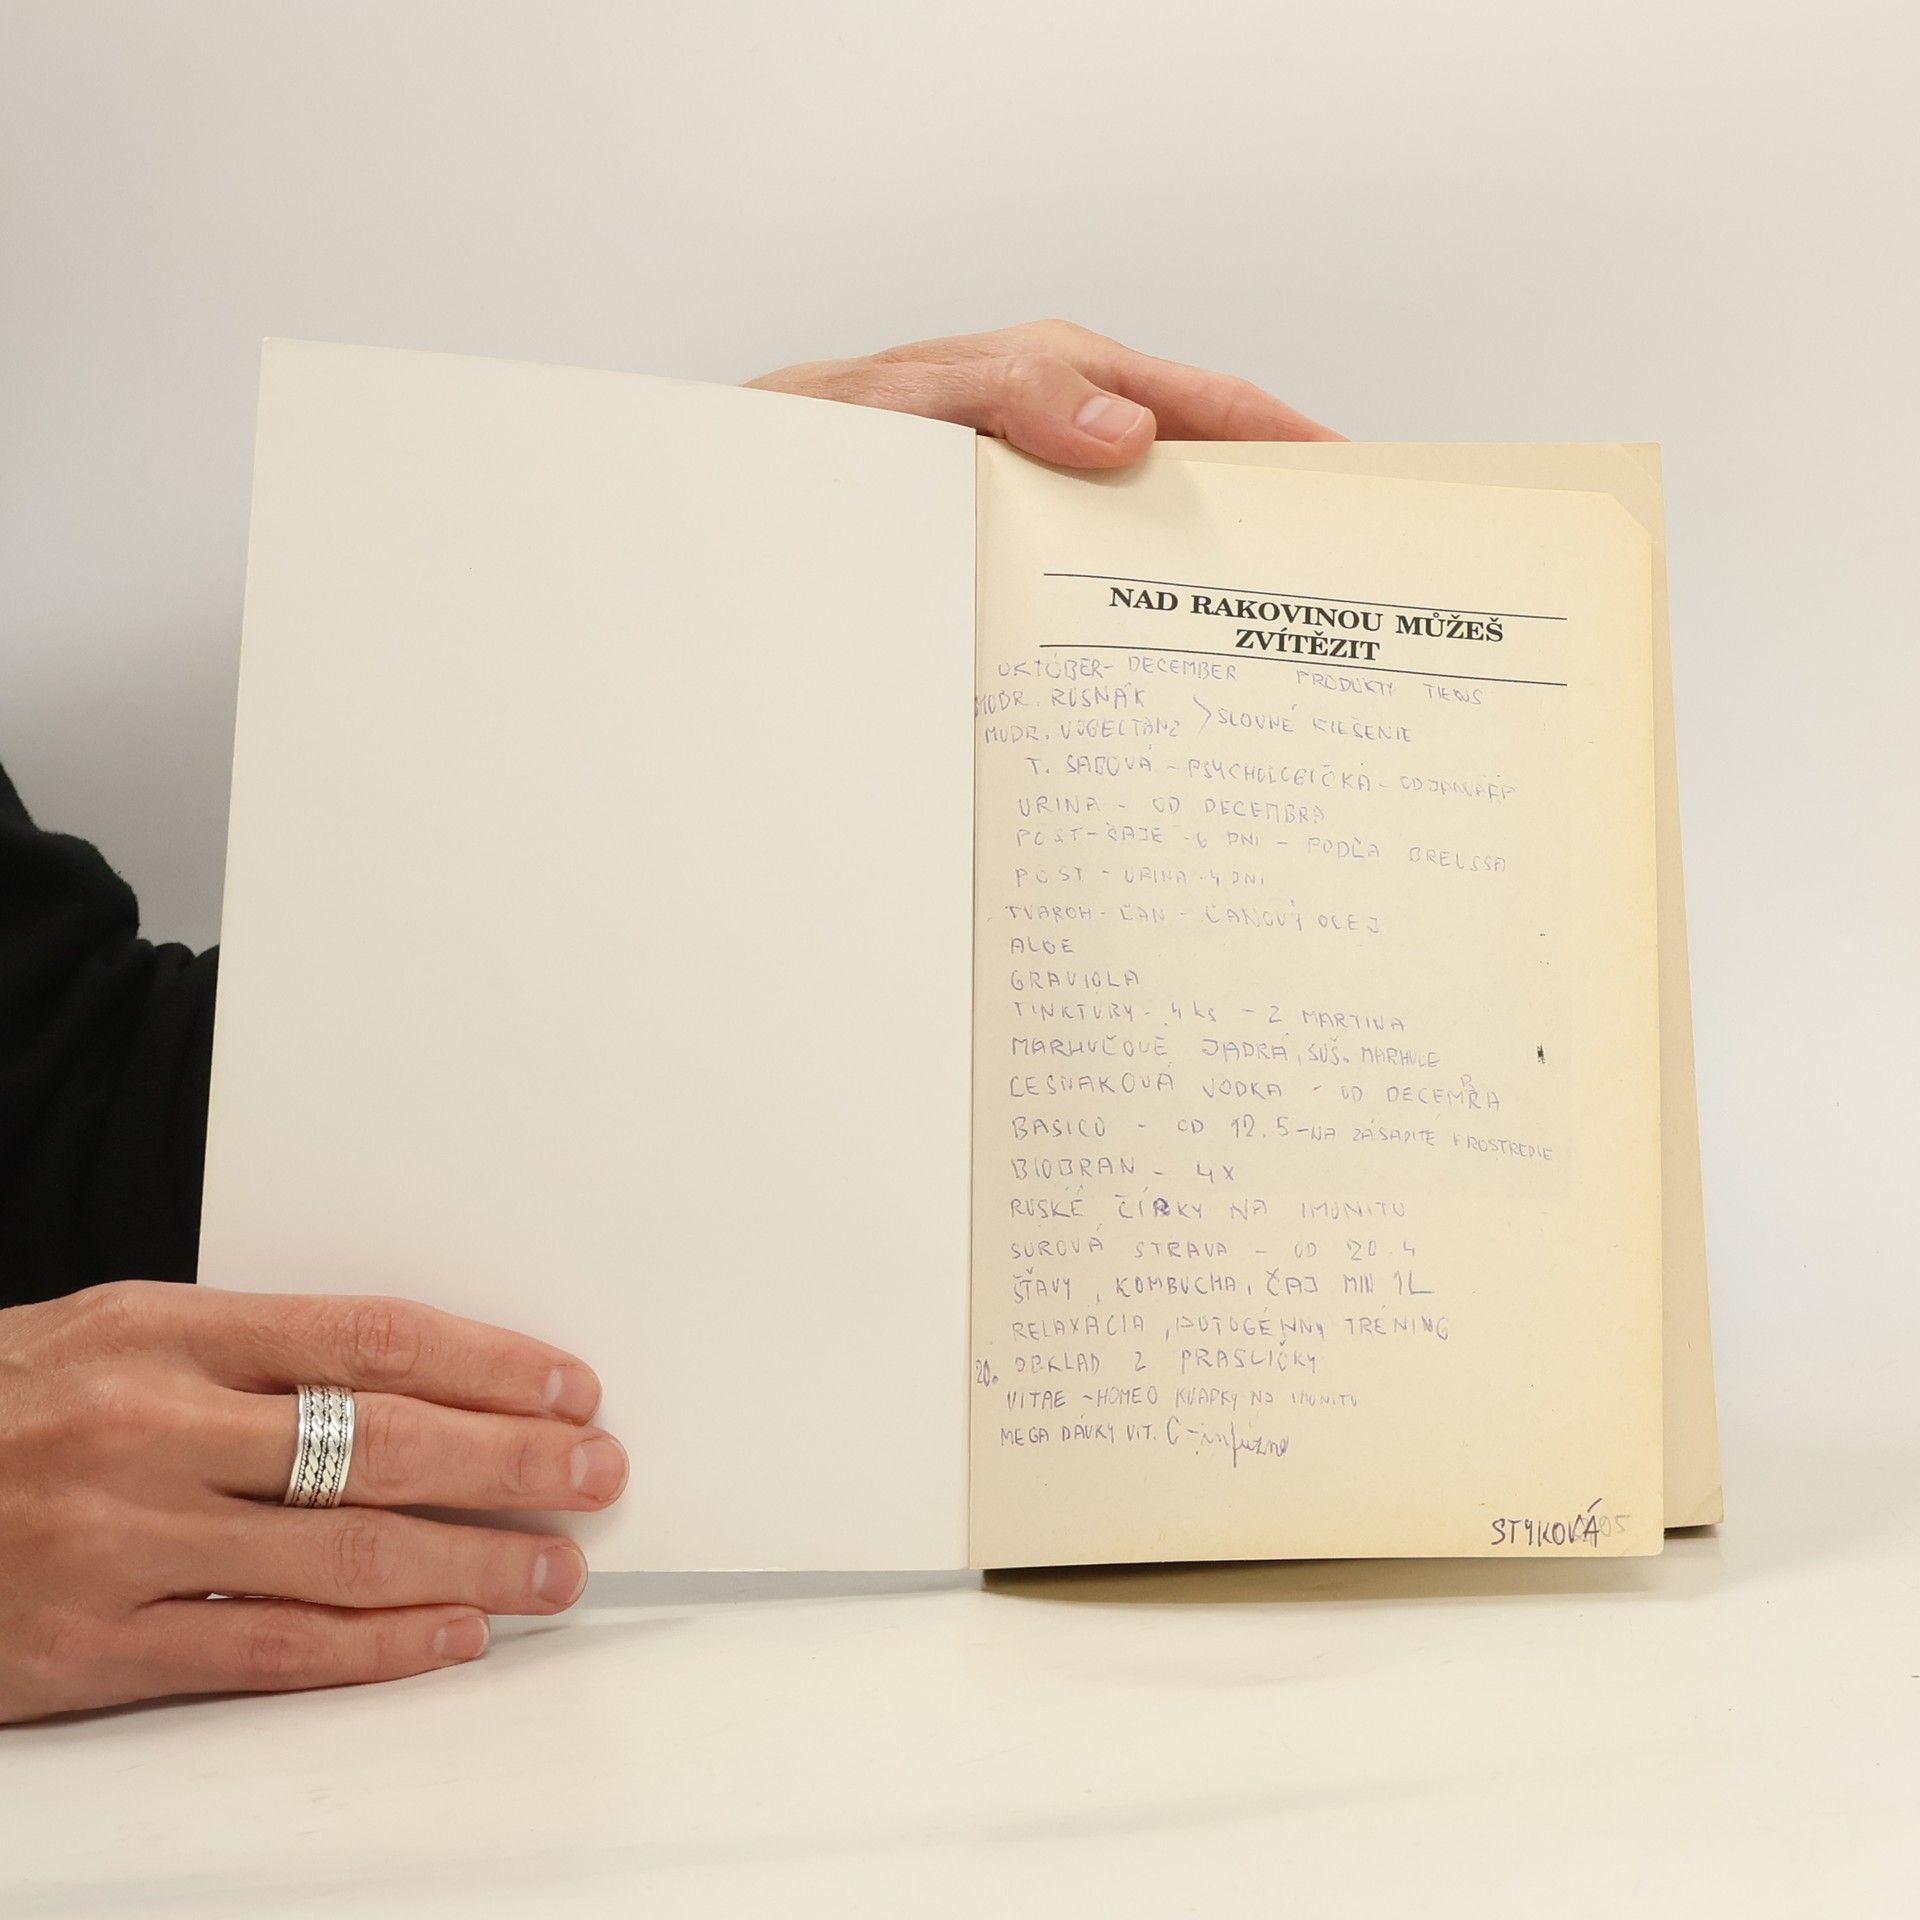 NAD RAKOVINOU MŮŽEŠ
ZVÍTĚZIT
OKTÓBER- DECEMBER PRODUKTY TIENS
MUDR. RUSNÁK
MUDR. VOGELTANZ > SLOVNÉ RIEŠENIE
T. SABOVÁ - PSYCHOLOGIČKA - OD JANUÁRA
URINA - OD DECEMBRA
POST - ČAJE - 6 DNI - PODĽA BREUSSA
POST - URINA - 4 DNI
TVAROH - ĽAN - ĽANOVÝ OLEJ
ALOE
GRAVIOLA
TINKTÚRY - 4 ks - Z MARTINA
MARHUĽOVÉ JADRÁ, SUŠ. MARHULE
CESNAKOVÁ VODKA - OD DECEMBRA
BASICO - OD 12.5 - NA ZÁSADITÉ PROSTREDIE
BIOBRAN - 4x
RUSKÉ ČÍPKY NA IMUNITU
SUROVÁ STRAVA - OD 20.4
ŠŤAVY, KOMBUCHA, ČAJ MIN 1L
RELAXÁCIA, AUTOGÉNNY TRÉNING
20. OBKLAD Z PRASLIČKY
VITAE - HOMEO KVAPKY NA IMUNITU
MEGA DÁVKY VIT. C - infúzne
STYKOVÁ